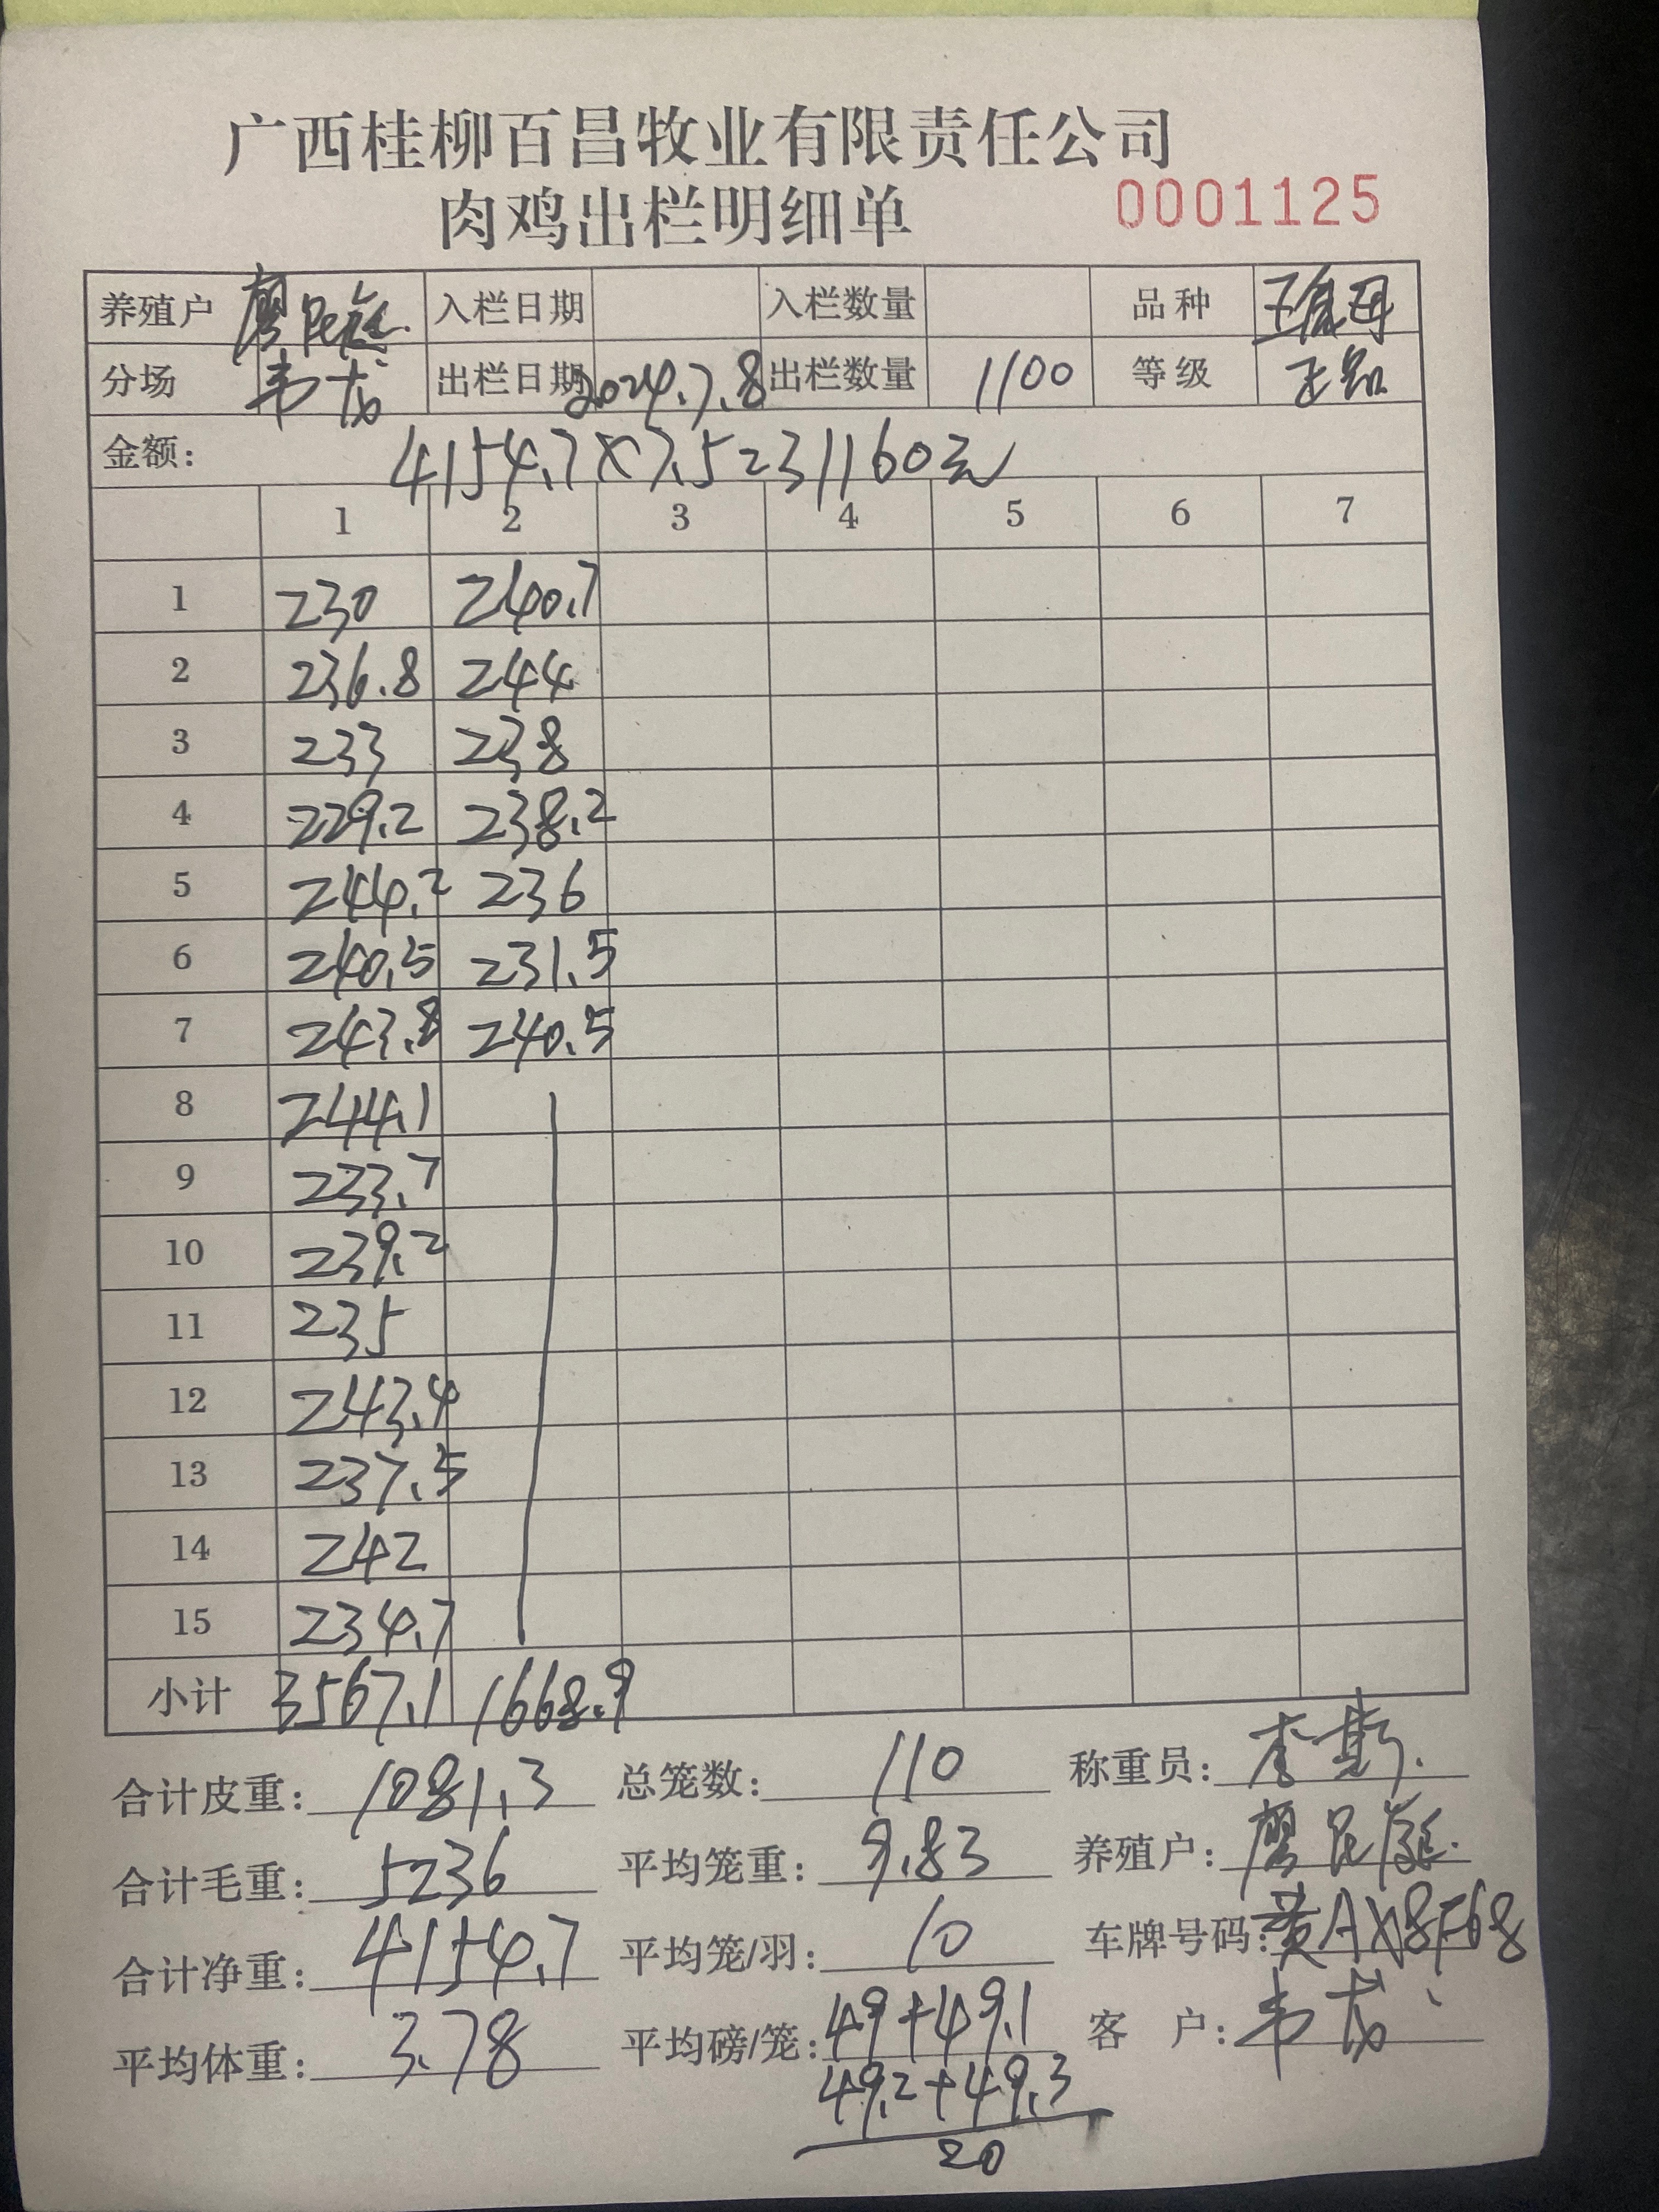 广西桂柳百昌牧业有限责任公司
肉鸡出栏明细单 0001125
养殖户 廖民 入栏日期 入栏数量 品种
分场 韦龙 出栏日期 2024.7.8 出栏数量 1100 等级 正品
金额: 4154.7×7.5=31160元
1 2 3 4 5 6 7
1 230 240.7
2 236.8 244
3 233 238
4 229.2 238.2
5 244.2 236
6 240.5 231.5
7 243.8 240.5
8 244.1
9 233.7
10 239.2
11 235
12 243.4
13 237.5
14 242
15 234.7
小计 3567.1 1668.9
合计皮重: 1081.3 总笼数: 110 称重员: 李斯
合计毛重: 5236 平均笼重: 9.83 养殖户: 廖民
合计净重: 4154.7 平均笼/羽: 10 车牌号码: 黄AX8F68
平均体重: 3.78 平均磅/笼: 49+49.1 客 户: 韦龙
49.2+49.3
20